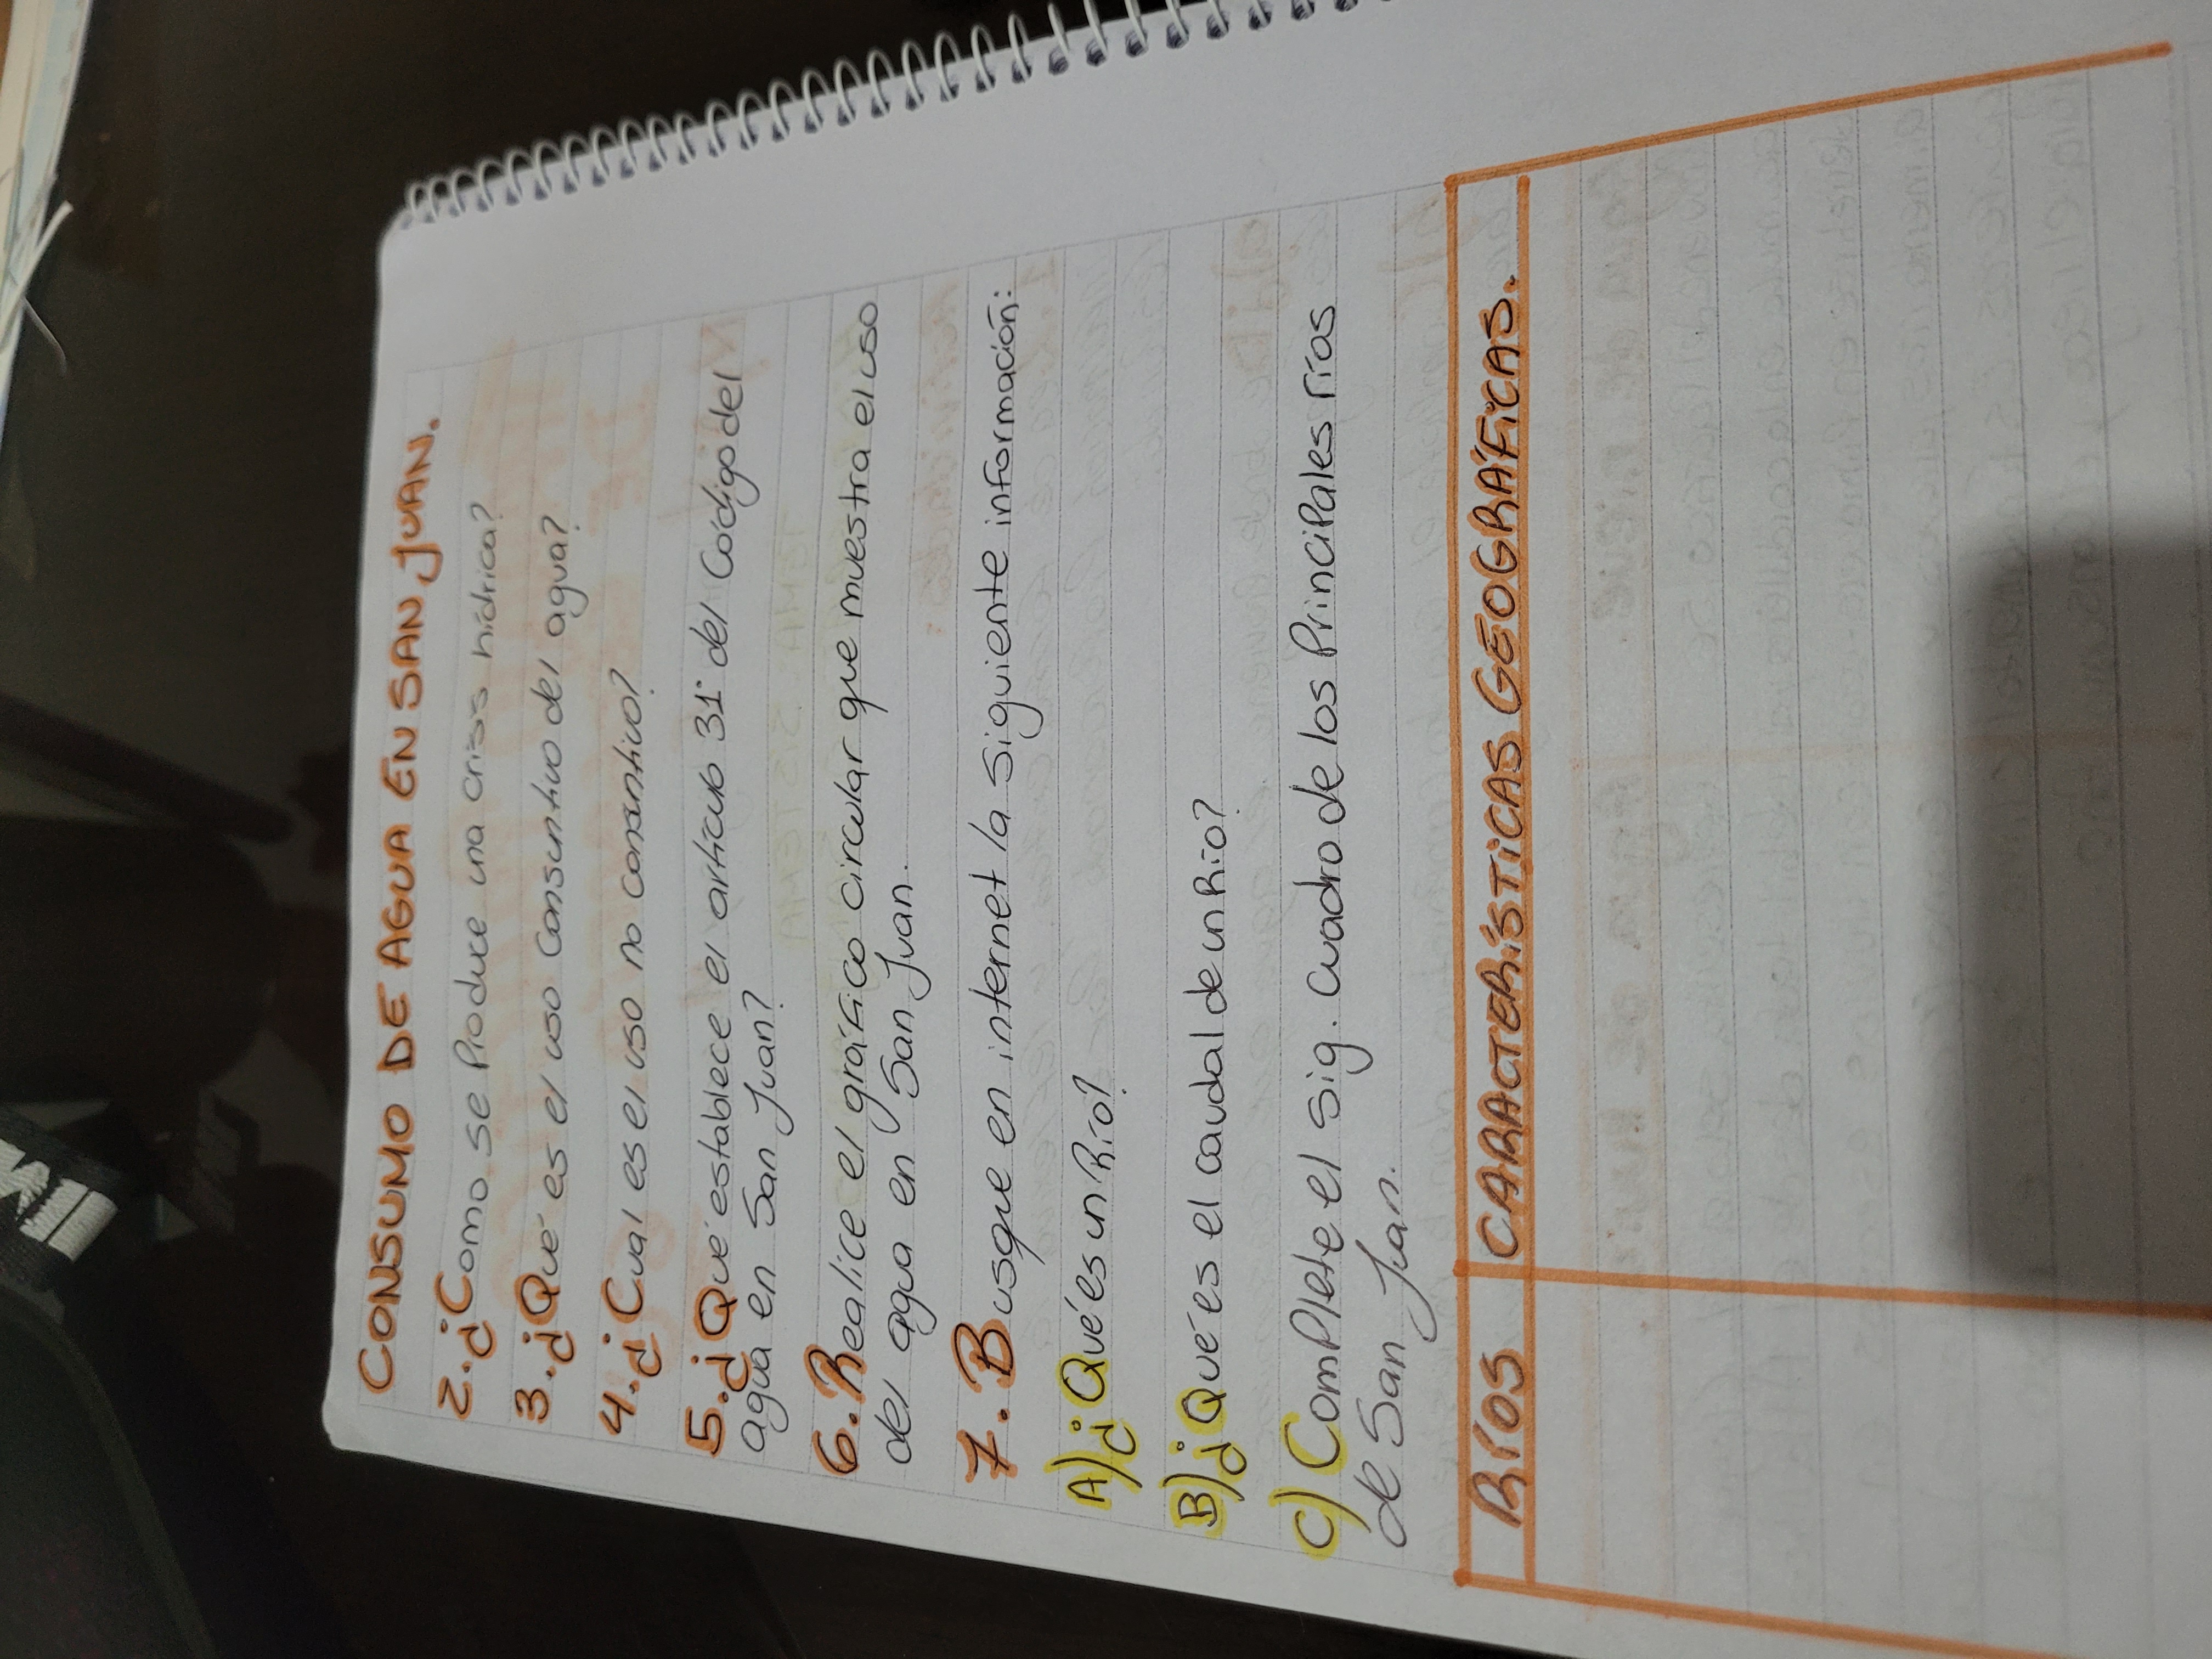 CONSUMO DE AGUA EN SAN JUAN.
2. ¿Como se Produce una crisis hídrica?
3. ¿Qué es el uso consuntivo del agua?
4. ¿Cual es el uso no consuntivo?
5. ¿Qué establece el artículo 31° del Código del
agua en San Juan?
6. Realice el gráfico circular que muestra el uso
del agua en San Juan.
7. Busque en internet la siguiente información:
A) ¿Qué es un Río?
B) ¿Qué es el caudal de un Río?
C) Complete el sig. cuadro de los Principales ríos
de San Juan.
RÍOS CARACTERÍSTICAS GEOGRÁFICAS.